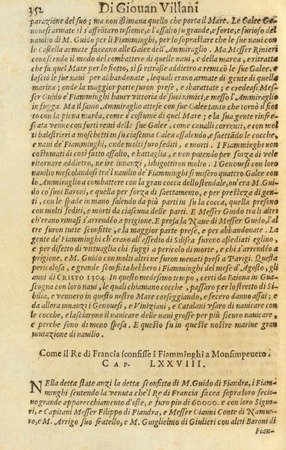 352 Di Giouan Villani
parazione del suo; ma non istimana quello che porta il Mare. Le Galee Ge-
nouesi armate si s'affrotaro insieme, e l'assalto fu grande, e forte, e furioso del
nauilio di M. Guido per li Fiamminghi, per lo soprastare che le sue naui con
le Castella armate faceano alle Galee dell'Ammiraglio. Ma Messer Rinieri
conoscendo il modo del combattere di quelle naui, e della marea, e ritratta
che fa quel Mare per lo fiotto, si si ritrasse addietro a remi cõ le sue Galee, e
lasciò le sue naui per abbandonate, le quali erano armate di gente di quella
marina; onde la maggior parte furon prese, e sbarattate; e credeasi Mes-
ser Guido e' Fiamminghi hauer vittoria de' suoi nimici, e messo l'Ammiraglio
in fugga. Ma il sauio Ammiraglio attese con sue Galee tanto che tornò il fiot
to con la piena marea, come è costume di quel Mare; e la sua gente rinfre-
scata venne con forti remi delle sue Galee, come caualli correnti, e con mol
ti balestrieri a moschetti in su ciascuna Galea assalendo, e saettãdo le cocche,
e naui de' Fiamminghi, onde molti furo fediti, e morti. I Fiamminghi non
costumati di così fatto assalto, e battaglia, e non potendo per forza di vele
ritornare addietro, ne ire innanzi, isbigottiron molto. I Genouesi con loro
nauilio mescolandosi tra'l nauilio de' Fiaminghi si misero quattro Galee con
lo Ammiraglio a combattere con la gran cocca dello stendale, ou'era M. Gui
do co' suoi Baroni, e quella per forza di saettamento, e per prestezza di gen-
ti, con le spade in mano salendo da più parti su la cocca, quella presono
con molti fediti, e morti da ciascuna delle parti. E Messer Guido tra li altri
ch'erano rimasi s'arrendéo a prigione. E presa la Naue di Messer Guido, l'al
tre furon tutte sconfitte, e la maggior parte prese, e per abbandonate. La
gente de' Fiamminghi ch'erano all'assedio di Silisea furono assediati eglino,
e per difetto di vittuaglia chi fuggì a pericolo di morte, e chi s'arrendéo a
prigione, e M. Guido con molti altri ne furon menati presi a Parigi. Questa
pericolosa, e grande sconfitta hebbero i Fiamminghi del mese d'Agosto, gli
anni di CRISTO 1304. In questo medesimo tempo, certi da Baiona in Gua-
scogna con loro naui, che le chiamano cocche, passaro per lo stretto di Sibi-
bilia, e vennero in questo nostro Mare corseggiando, e fecero danno assai; e
da allora innanzi i Genouesi, e Viniziani, e Catalani vsaro di nauicare con
le cocche, e lasciarono il nauicare delle naui grosse per più sicuro nauicare, e
e perche sono di meno spesa. E questo fu in queste nostre marine gran
mutazione di nauilio.
Come il Re di Francia sconfisse i Fiamminghi a Monsimpeuero.
CAP. LXXVIII.
NElla detta state anzi la detta sconfitta di M. Guido di Fiandra, i Fiam-
minghi sentendo la venuta che'l Re di Francia facea sopra loro feciono
grande apparecchiamento d'oste, e furo più di 60000. e con loro Signo-
ri, e Capitani Messer Filippo di Fiandra, e Messer Gianni Conte di Namur-
ro, e M. Arrigo suo fratello, e M. Guglielmo di Giulieri con altri Baroni di
Fian-